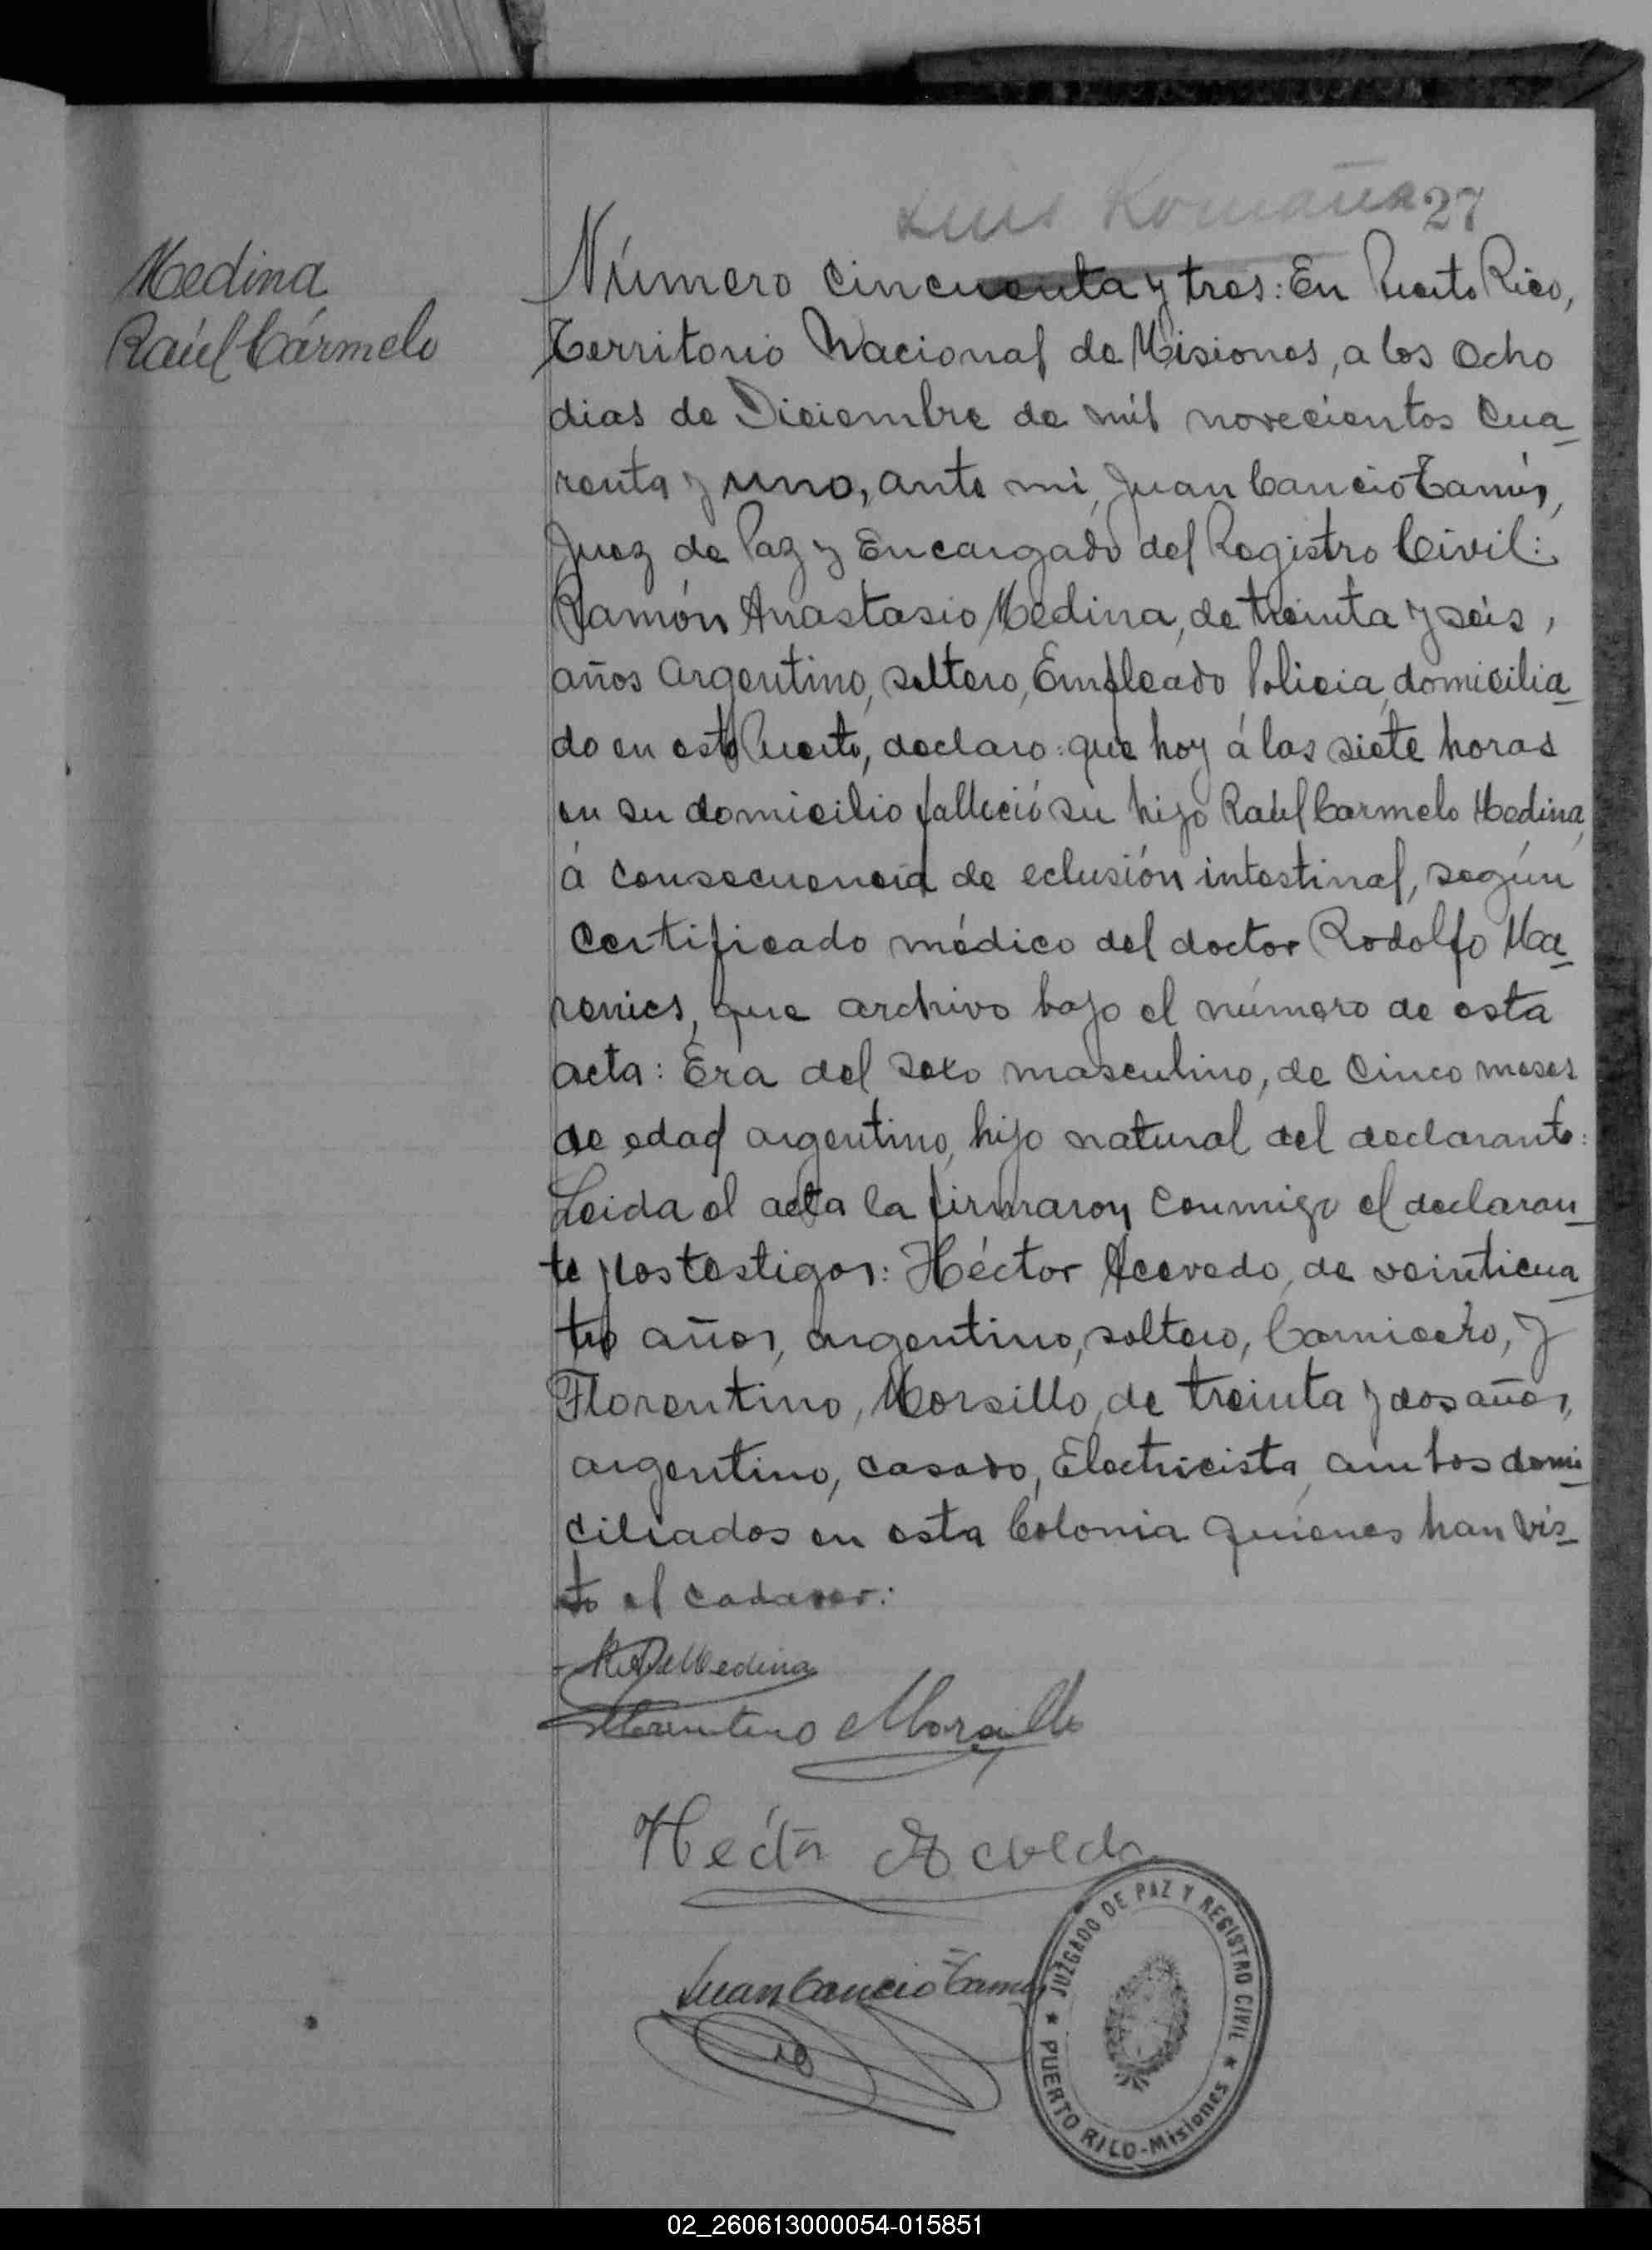 Luis Romaña 27
Medina
Raúl Cármelo
Número cincuenta y tres: En Puerto Rico,
Territorio Nacional de Misiones, a los ocho
dias de Diciembre de mil novecientos cua-
renta y uno, ante mi, Juan Cancio
Juez de Paz y Encargado del Registro Civil:
Ramón Anastasio Medina, de treinta y seis,
años argentino, soltero, Empleado Policia, domicilia-
do en este Puerto, declaro: que hoy á las siete horas
en su domicilio falleció su hijo Raúl Carmelo Medina,
á consecuencia de eclusión intestinal, según
certificado médico del doctor Rodolfo Ma-
renics, que archivo bajo el número de esta
acta: Era del sexo masculino, de cinco meses
de edad argentino, hijo natural del declarante:
Leida el acta la firmaron conmigo el declaran-
te y los testigos: Héctor Acevedo, de veinticua-
tro años, argentino, soltero, Carnicero, y
Florentino, Morsillo, de treinta y dos años,
argentino, casado, Electricista, ambos domi-
ciliados en esta Colonia quienes han vis-
to el cadaver:
Medina
Florentino Morsillo
Héctor Acevedo
Juan Cancio
JUZGADO DE PAZ Y REGISTRO CIVIL
★ PUERTO RICO-Misiones ★
02_260613000054-015851